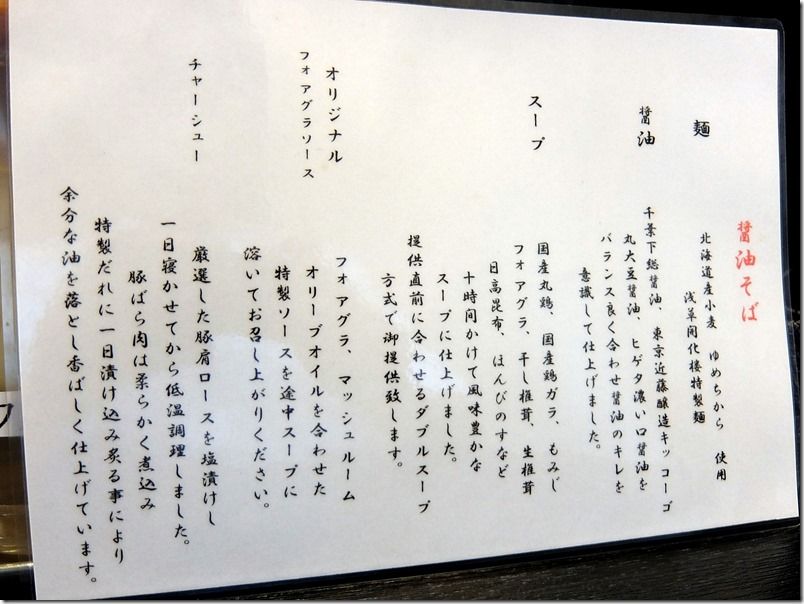 醤油そば
麺
北海道産小麦 ゆめちから 使用
浅草開化楼特製麺
醤油
千葉下総醤油、東京近藤醸造キッコーゴ
丸大豆醤油、ヒゲタ濃い口醤油を
バランス良く合わせ醤油のキレを
意識して仕上げました。
スープ
国産丸鶏、国産鶏ガラ、もみじ
フォアグラ、干し椎茸、生椎茸
日高昆布、はんびのすなど
十時間かけて風味豊かな
スープに仕上げました。
提供直前に合わせるダブルスープ
方式で御提供致します。
オリジナル
フォアグラソース
フォアグラ、マッシュルーム
オリーブオイルを合わせた
特製ソースを途中スープに
溶いてお召し上がりください。
チャーシュー
厳選した豚肩ロースを塩漬けし
一日寝かせてから低温調理しました。
豚ばら肉は柔らかく煮込み
特製だれに一日漬け込み炙る事により
余分な油を落とし香ばしく仕上げています。